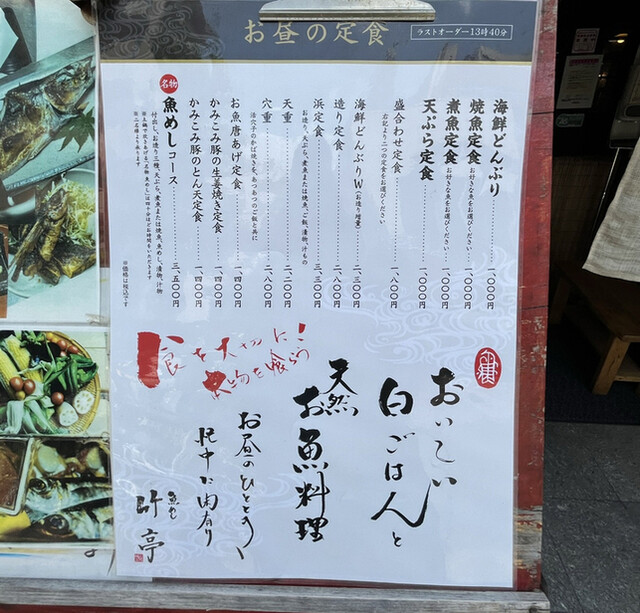 お昼の定食
ラストオーダー13時40分
海鮮どんぶり 一、〇〇〇円
焼魚定食 お好きな魚をお選びください 一、〇〇〇円
煮魚定食 お好きな魚をお選びください 一、〇〇〇円
天ぷら定食 一、〇〇〇円
盛合わせ定食 一、八〇〇円
右記より二つの定食をお選びください
海鮮どんぶりW(お造り増量) 二、三〇〇円
造り定食 二、〇〇〇円
浜定食 三、三〇〇円
お造り、天ぷら、煮魚または焼魚、ご飯、漬物、汁もの
天重 二、二〇〇円
穴重 二、八〇〇円
活穴子のかば焼きを、あつあつのご飯と共に
お魚唐あげ定食 一、四〇〇円
かみこみ豚の生姜焼き定食 一、四〇〇円
かみこみ豚のとん天定食 一、四〇〇円
名物
魚めしコース 三、五〇〇円
付出し、お造り三種、天ぷら、煮魚または焼魚、魚めし、漬物、汁物
※二名様より承ります。
※価格は税込です
食を大切に!
おいしい
白ごはんと
天然
お魚料理
お昼のひととき
忙中に閑有り
魚匠
叶亭